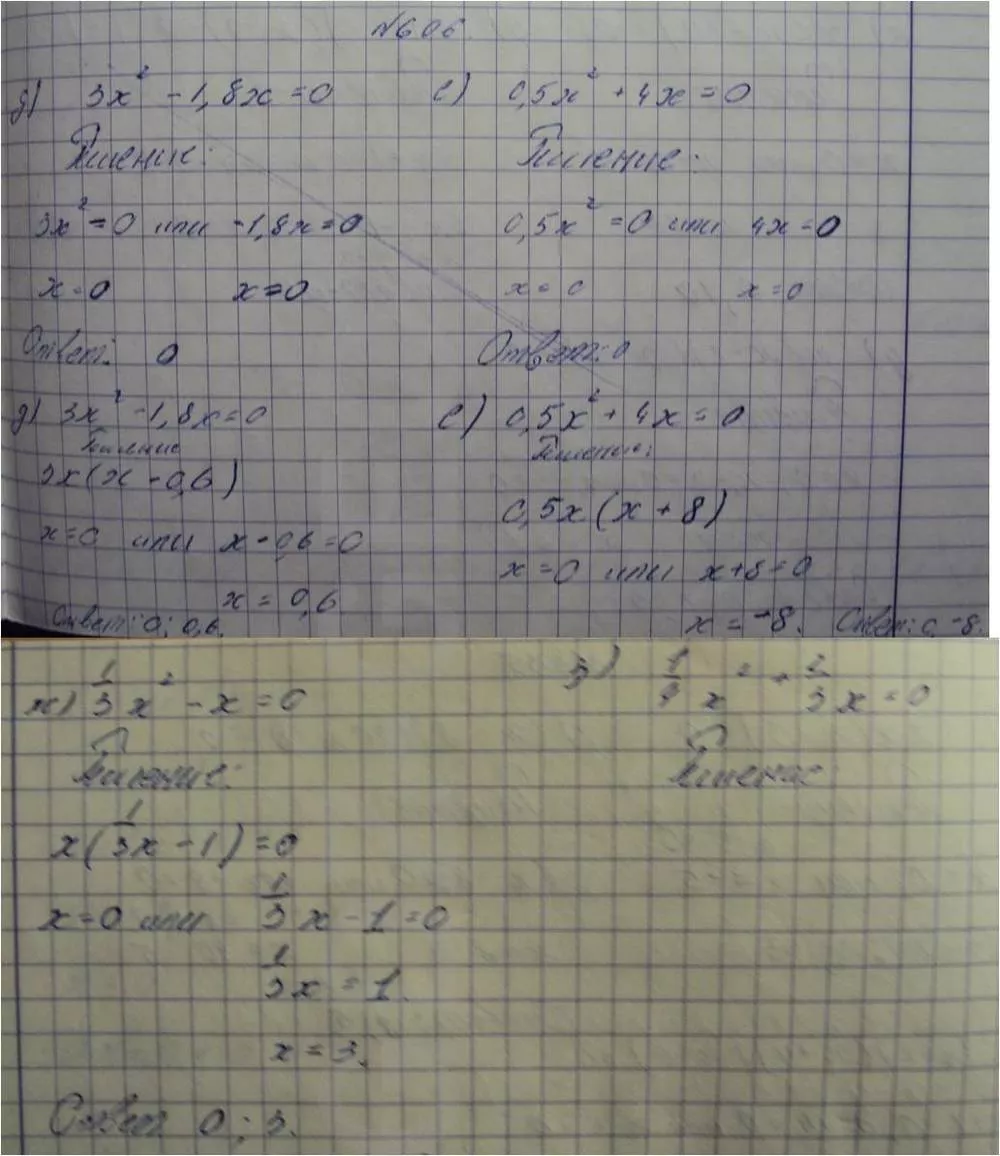 №606.
д) 3x² - 1,8x = 0
Решение:
3x² = 0 или -1,8x = 0
x = 0 x = 0
Ответ: 0
е) 0,5x² + 4x = 0
Решение:
0,5x² = 0 или 4x = 0
x = 0 x = 0
Ответ: 0
д) 3x² - 1,8x = 0
Решение
3x(x - 0,6)
x = 0 или x - 0,6 = 0
x = 0,6
Ответ: 0; 0,6.
е) 0,5x² + 4x = 0
Решение:
0,5x(x + 8)
x = 0 или x + 8 = 0
x = -8. Ответ: 0, -8.
ж) 1/3 x² - x = 0
Решение:
x(1/3 x - 1) = 0
x = 0 или 1/3 x - 1 = 0
1/3 x = 1.
x = 3.
Ответ 0; 3.
з) x² + 2/3 x = 0
Решение: